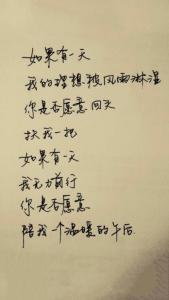 如果有一天
我的理想被风雨淋湿
你是否愿意回头
扶我一把
如果有一天
我无力前行
你是否愿意
陪我一个温暖的午后